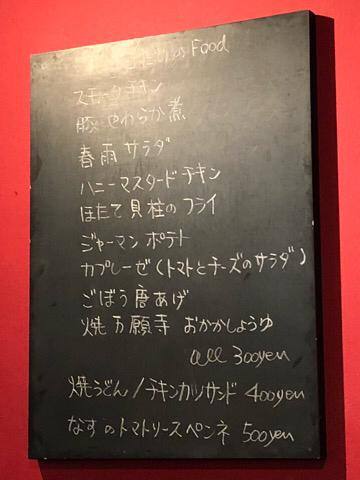 Food
スモークチキン
豚やわらか煮
春雨サラダ
ハニーマスタードチキン
ほたて貝柱のフライ
ジャーマンポテト
カプレーゼ(トマトとチーズのサラダ)
ごぼう唐あげ
焼万願寺 おかかしょうゆ
all 300yen
焼うどん/チキンカツサンド 400yen
なすのトマトソースペンネ 500yen